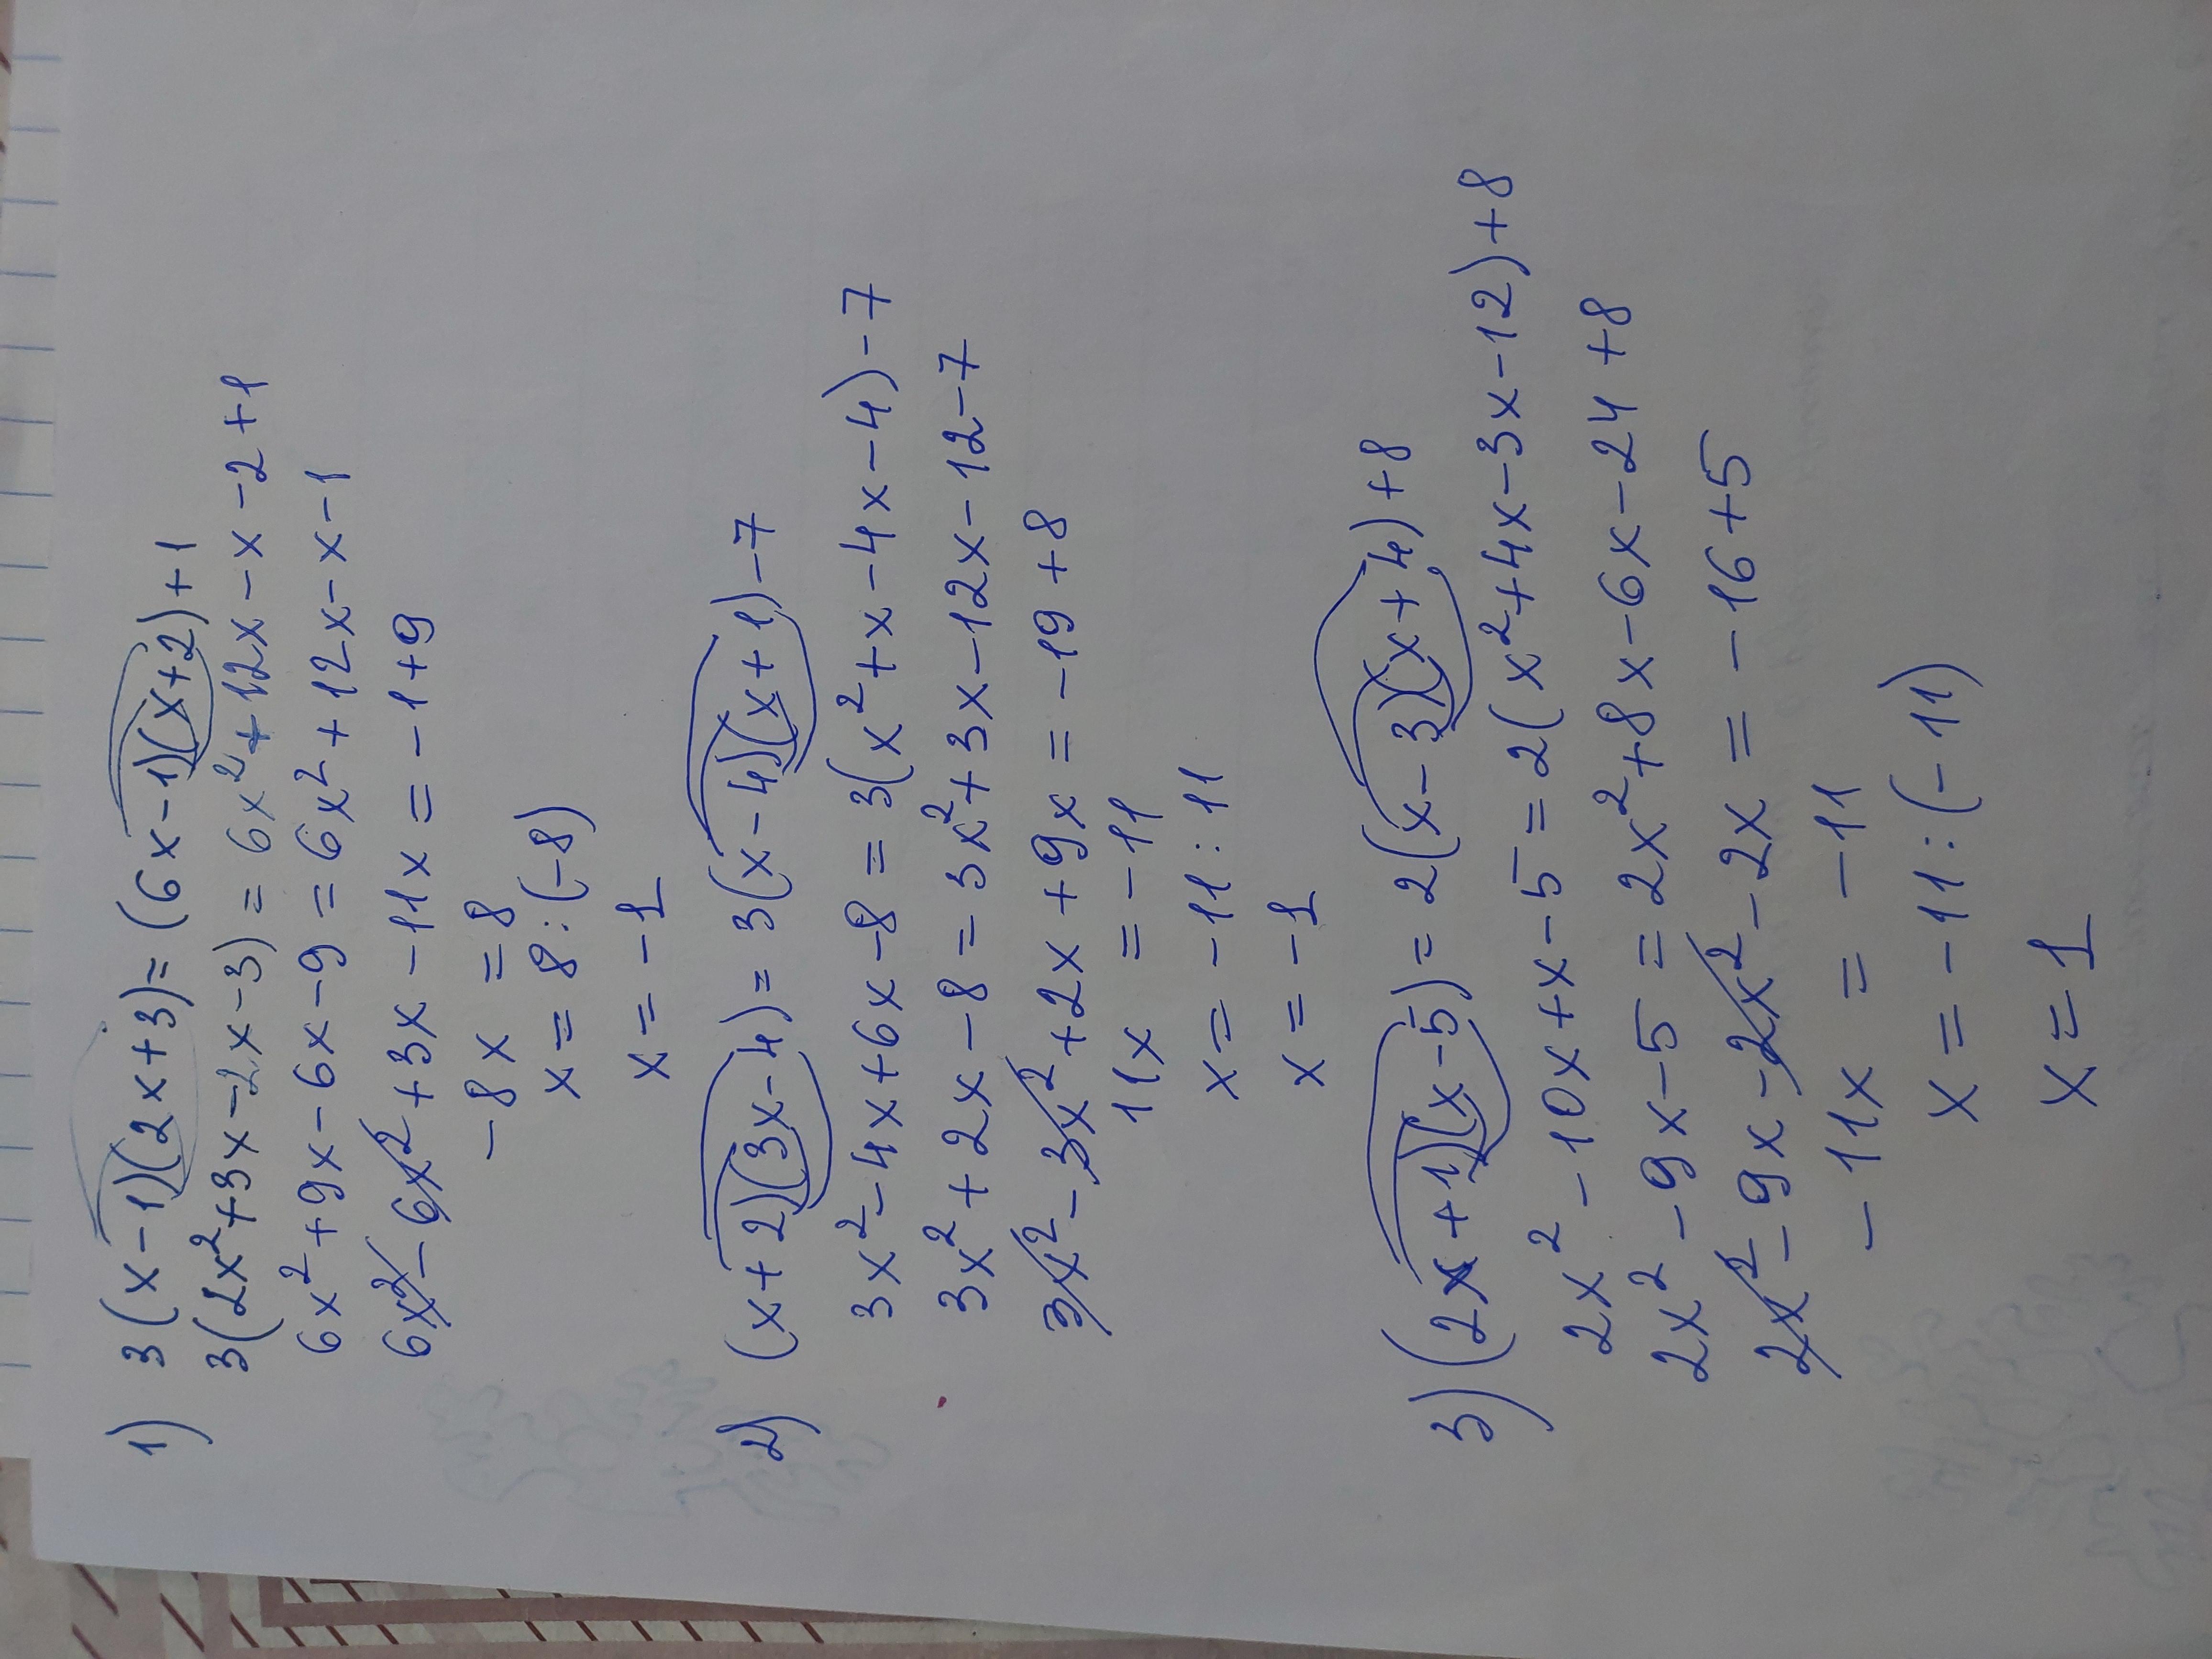 1) 3(x-1)(2x+3)=(6x-1)(x+2)+1
3(2x²+3x-2x-3)=6x²+12x-x-2+1
6x²+9x-6x-9=6x²+12x-x-1
6x²-6x²+3x-11x=-1+9
-8x=8
x=8:(-8)
x=-1
2) (x+2)(3x-4)=3(x-4)(x+1)-7
3x²-4x+6x-8=3(x²+x-4x-4)-7
3x²+2x-8=3x²+3x-12x-12-7
3x²-3x²+2x+9x=-19+8
11x=-11
x=-11:11
x=-1
3) (2x+1)(x-5)=2(x-3)(x+4)+8
2x²-10x+x-5=2(x²+4x-3x-12)+8
2x²-9x-5=2x²+8x-6x-24+8
2x²-9x-2x²-2x=-16+5
-11x=-11
x=-11:(-11)
x=1